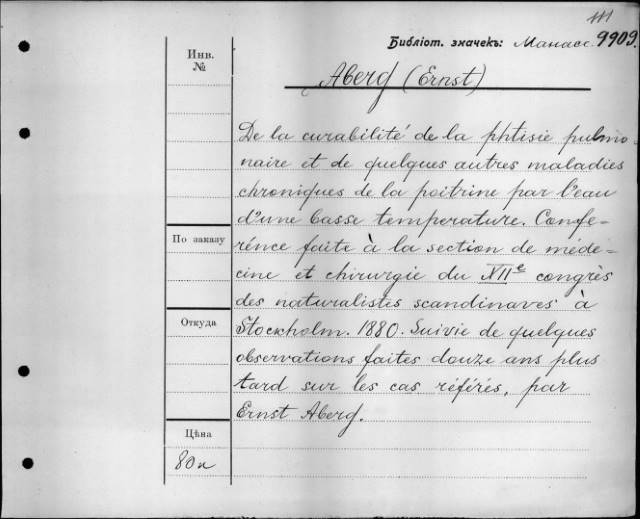 111
Библіот. значекъ: Манасс. 9909.
Инв. №
Aberg (Ernst)
De la curabilité de la phtisie pulmo-
naire et de quelques autres maladies
chroniques de la poitrine par l'eau
d'une basse temperature. Confe-
По заказу
rénce faite à la section de méde-
cine et chirurgie du XIIe congrès
des naturalistes scandinaves à
Откуда
Stockholm. 1880. Suivie de quelques
observations faites douze ans plus
tard sur les cas référés, par
Ernst Aberg.
Цѣна
80к